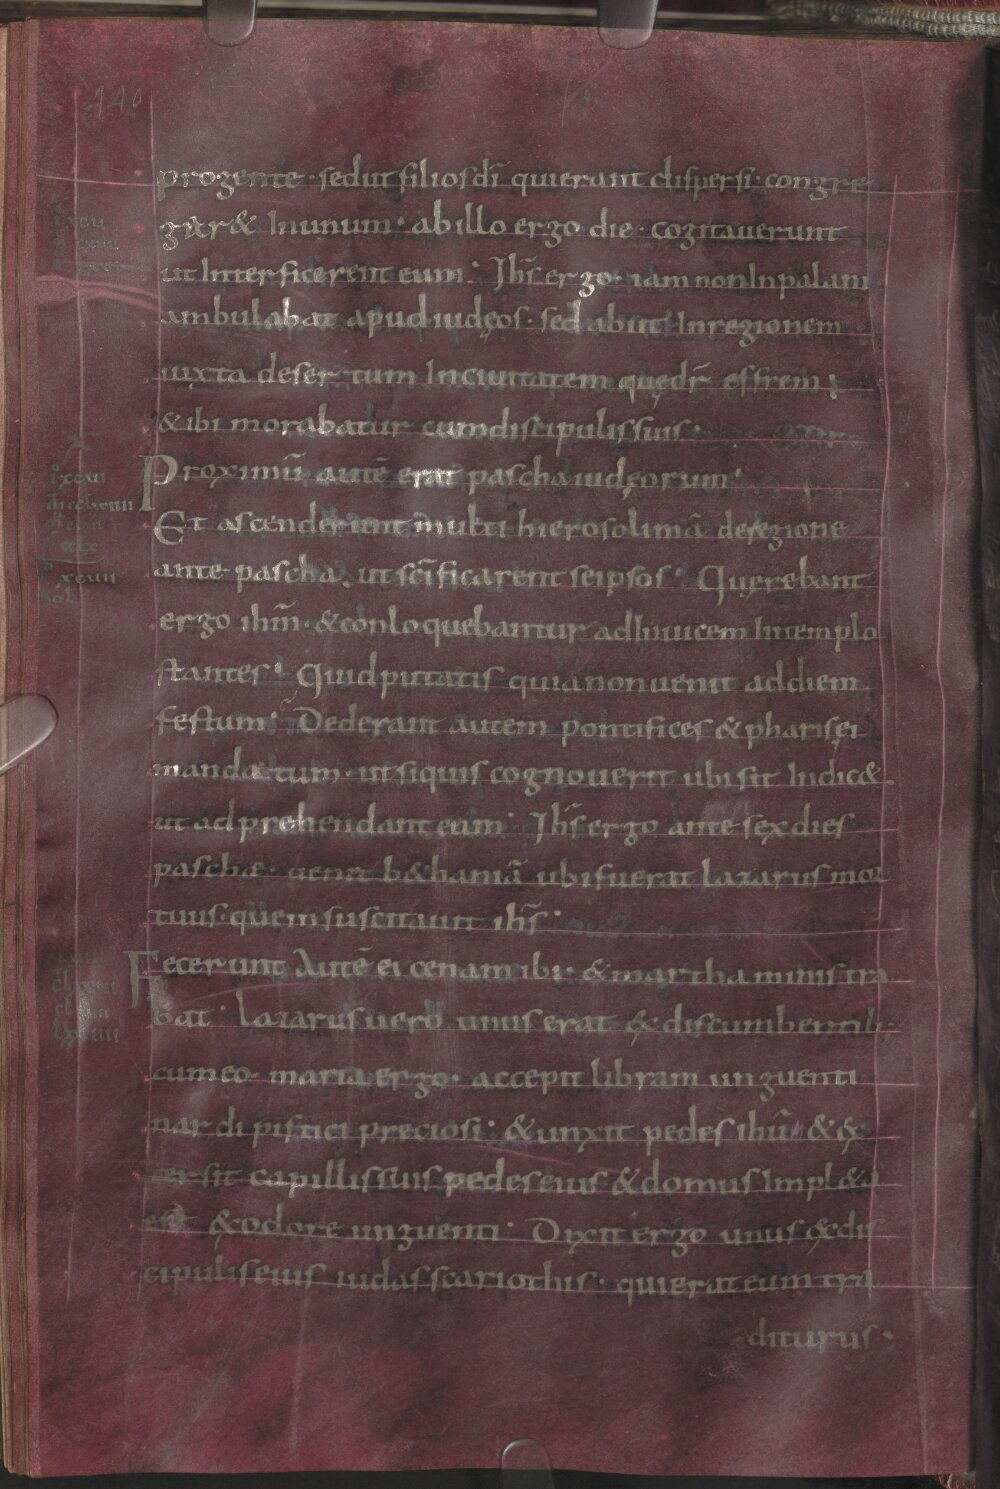 440
pro gente · sed ut filios dī qui erant dispersi · congre
gar& In unum · ab illo ergo die · cogitauerunt
ut Interficerent eum · Ihs̄ ergo · iam non In palam
ambulabat apud iudęos · sed abiit In regionem
iuxta desertum In ciuitatem quę dr̄ effrem ;
& ibi morabatur cum discipulis suis ·
Proximū autē erat pascha iudęorum ·
Et ascenderunt multi hierosolimā de regione
ante pascha · ut scīficarent se ipsos · Quęrebant
ergo ihm̄ · & conloquebantur ad Inuicem In templo
stantes · Quid putatis quia non uenit ad diem
festum · Dederant autem pontifices & pharisęi
mandatum · ut si quis cognouerit ubi sit Indic&
ut adprehendant eum · Ihs̄ ergo ante sex dies
paschae · uenit b&haniā ubi fuerat lazarus mor
tuus · quem suscitauit ihs̄ ·
Fecerunt autē ei cenam ibi · & martha ministra
bat · lazarus uero unus erat ex discumbentib ·
cum eo · maria ergo · accepit libram unguenti
nardi pistici preciosi · & unxit pedes ihū & ex
tersit capillis suis pedes eius & domus Impl&a
est ex odore unguenti · Dixit ergo unus ex dis
cipulis eius iudas scariothis · qui erat eum tra
diturus ·